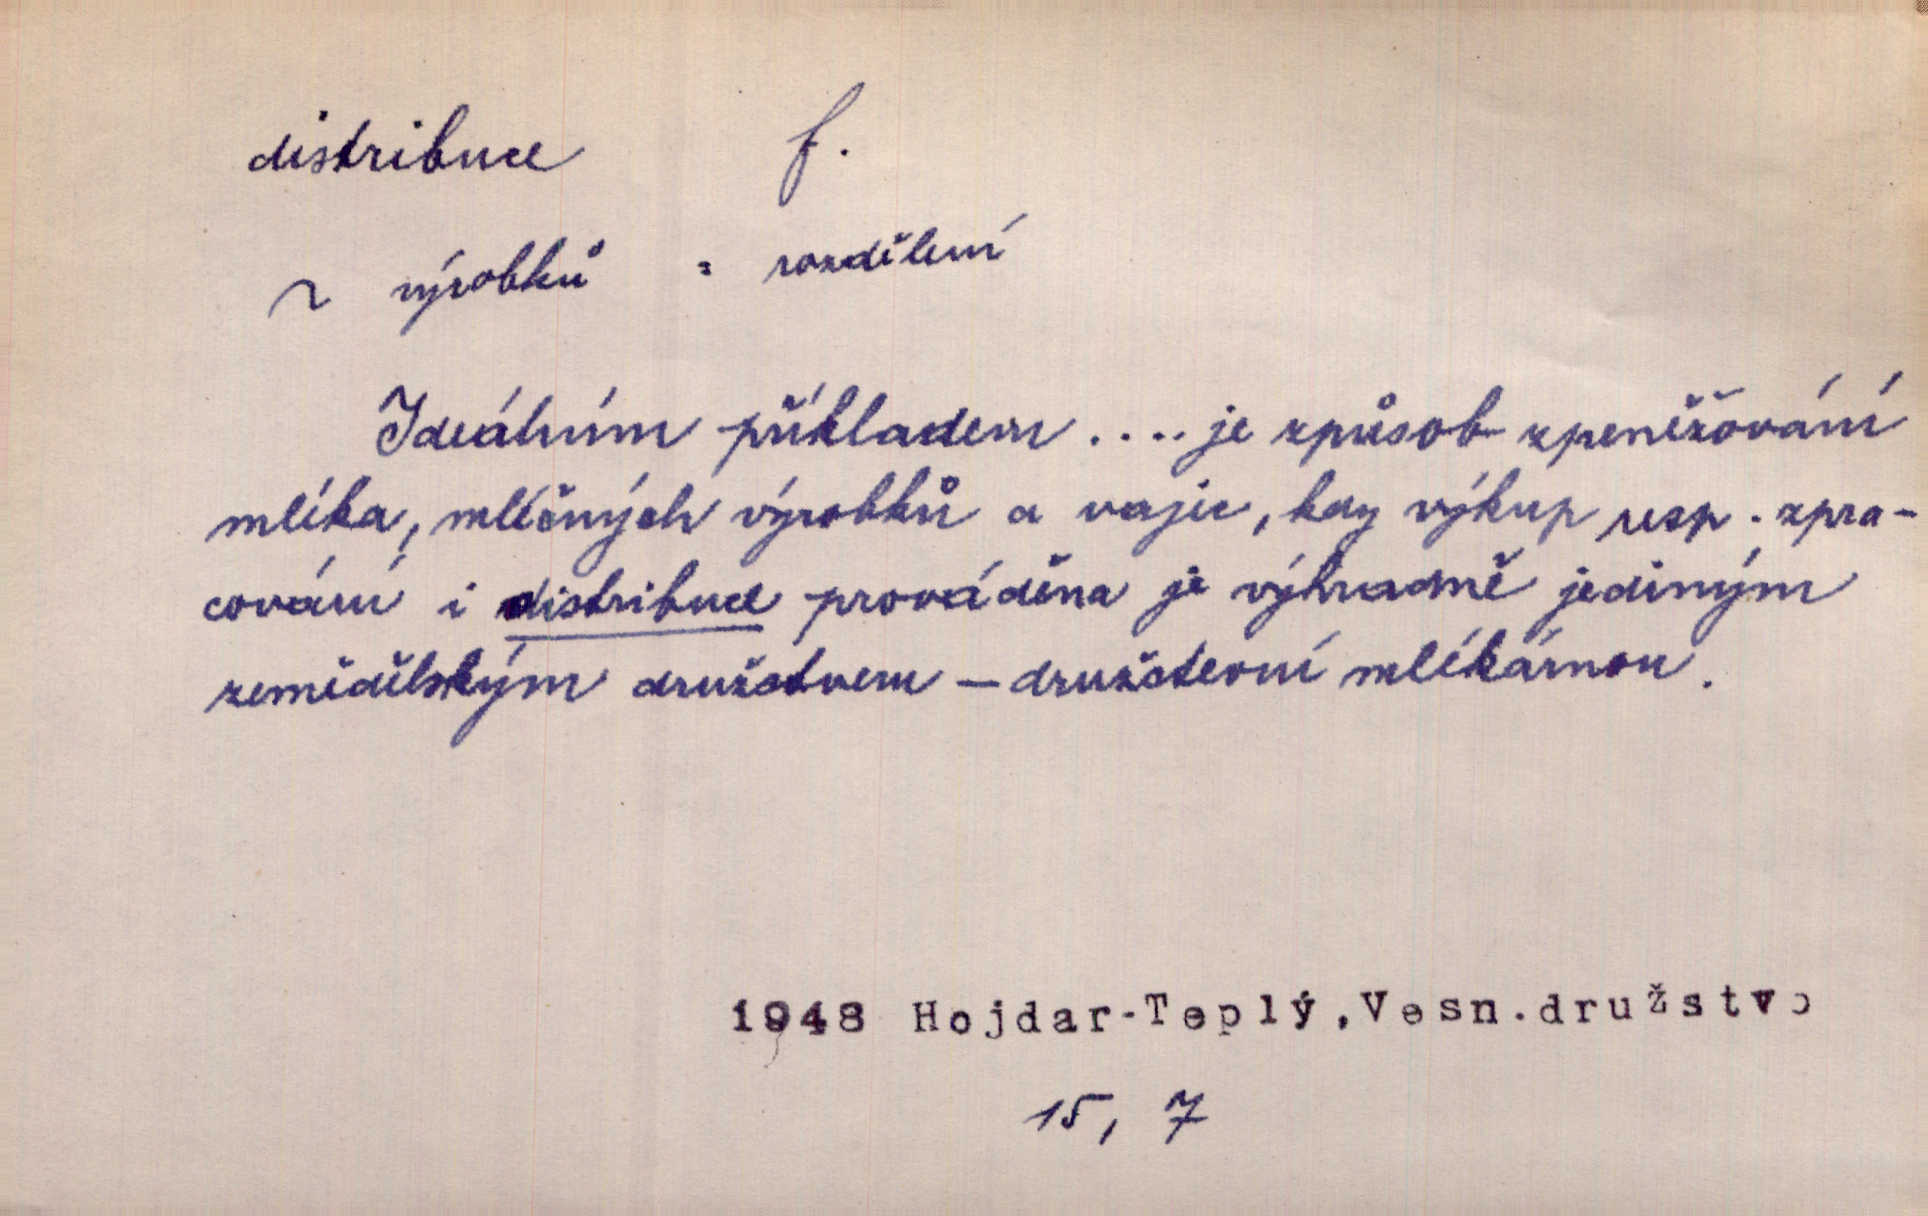 distribuce f.
~ výrobků = rozdělení
Ideálním příkladem .... je způsob zpeněžování
mléka, mléčných výrobků a vajec, kdy výkup resp. zpra-
cování i distribuce prováděna je výhradně jediným
zemědělským družstvem – družstevní mlékárnou.
1948 Hojdar-Teplý,Vesn.družstvo
15, 7